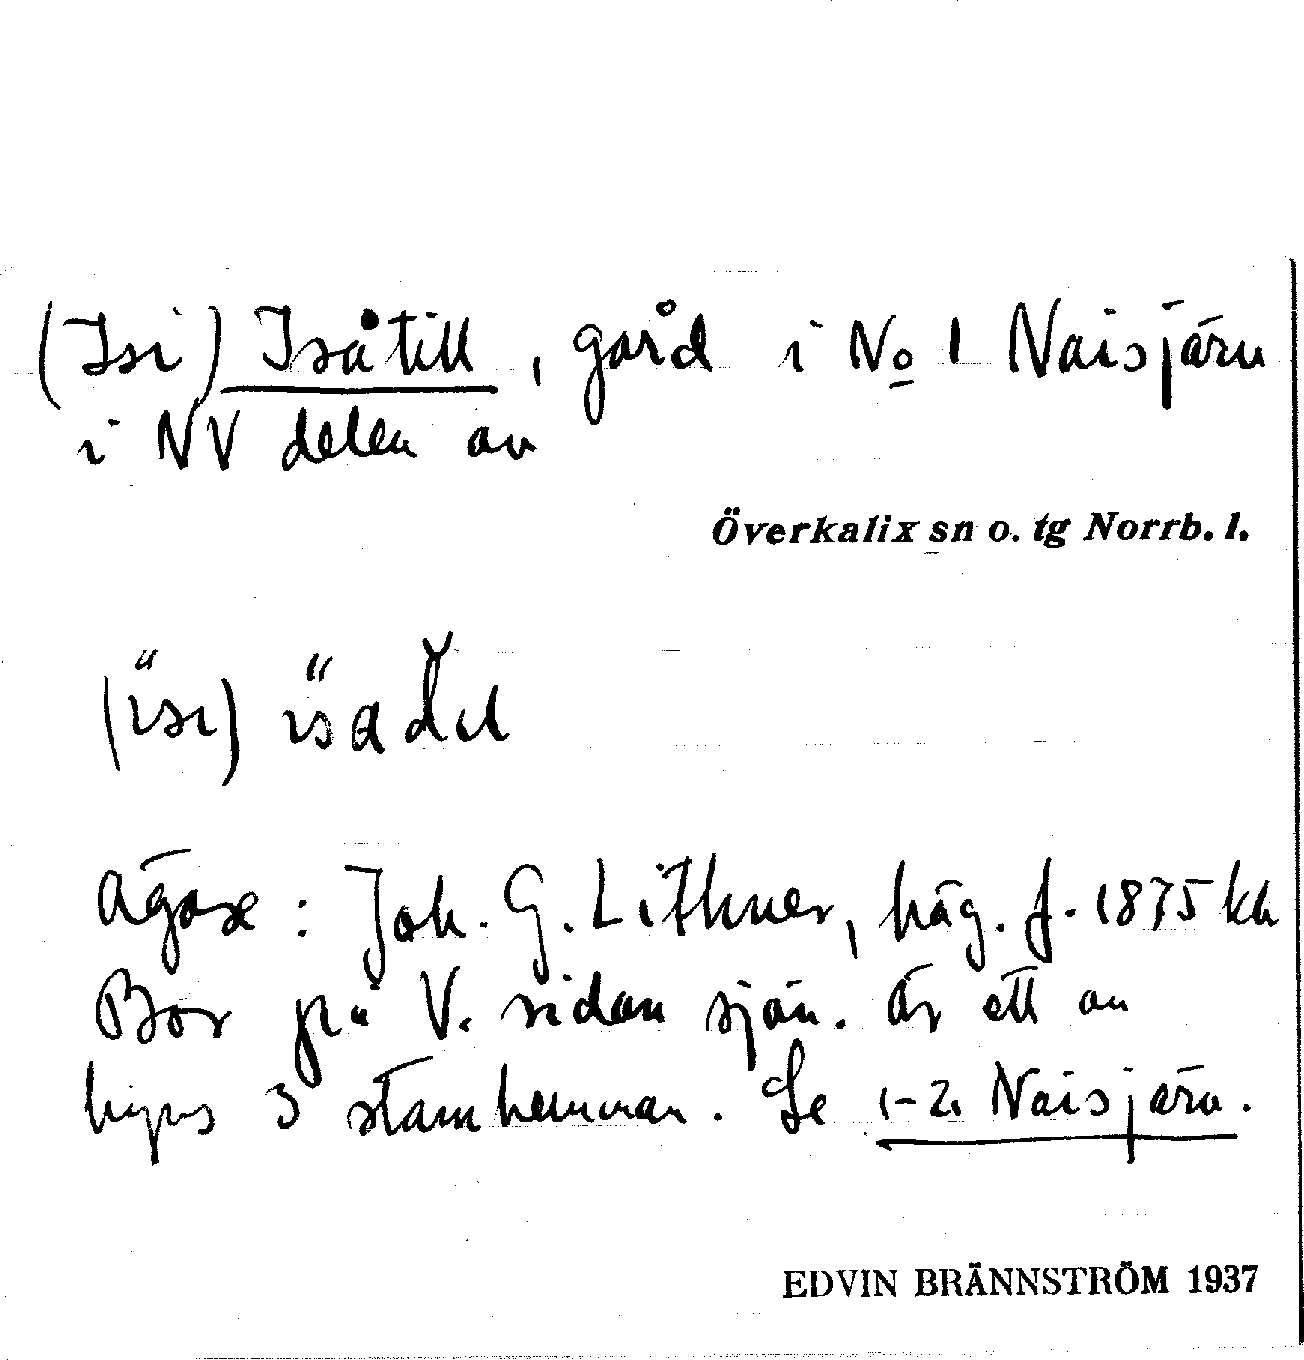 (Isi) Isåtill, gård i No 1 Naisjärv
i NV delen av
Överkalix sn o. tg Norrb. l.
(ïsi)
Ägare: Joh. G. Lithner, häg. f. 1875 kh
Bor på V. sidan sjön. Är ett av
byns 3 stamhemman. Se 1-2, Naisjärv.
EDVIN BRÄNNSTRÖM 1937